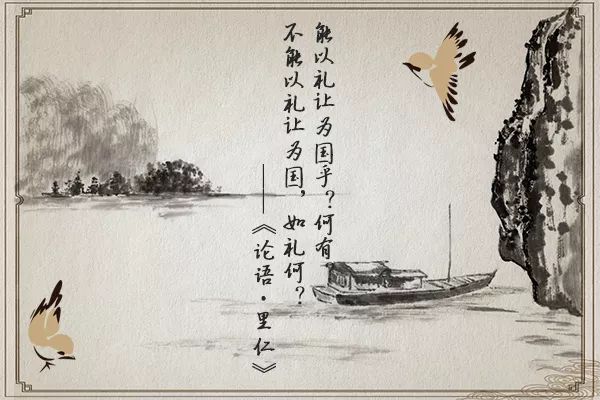 能以礼让为国乎？何有？
不能以礼让为国，如礼何？
——《论语·里仁》